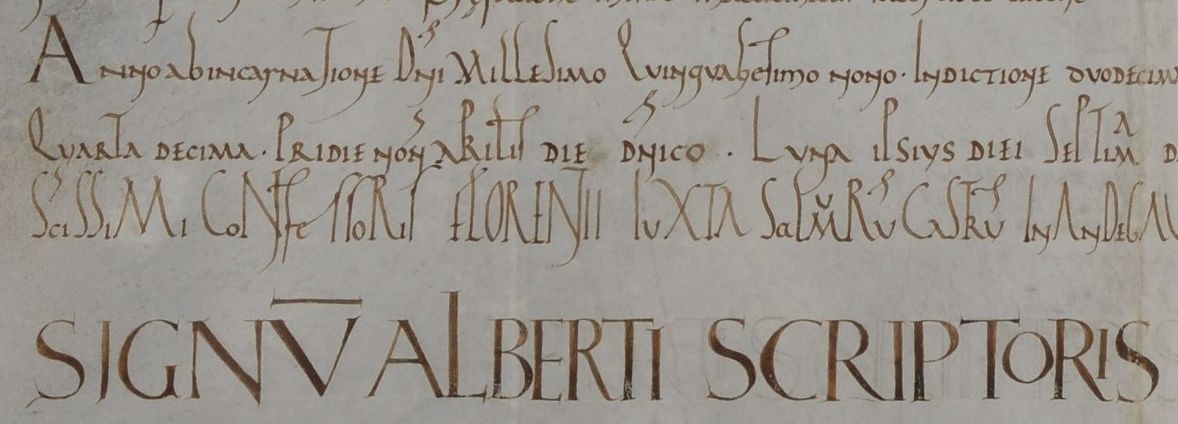 Anno ab incarnatione Dni Millesimo Quinquagesimo nono. Indictione duodecim
Quarta decima. Pridie non aprilis die dnico. Luna ipsius diei septima
Scissimi Confessoris Florentii iuxta Salmuru Castru in Andegav
SIGNU ALBERTI SCRIPTORIS